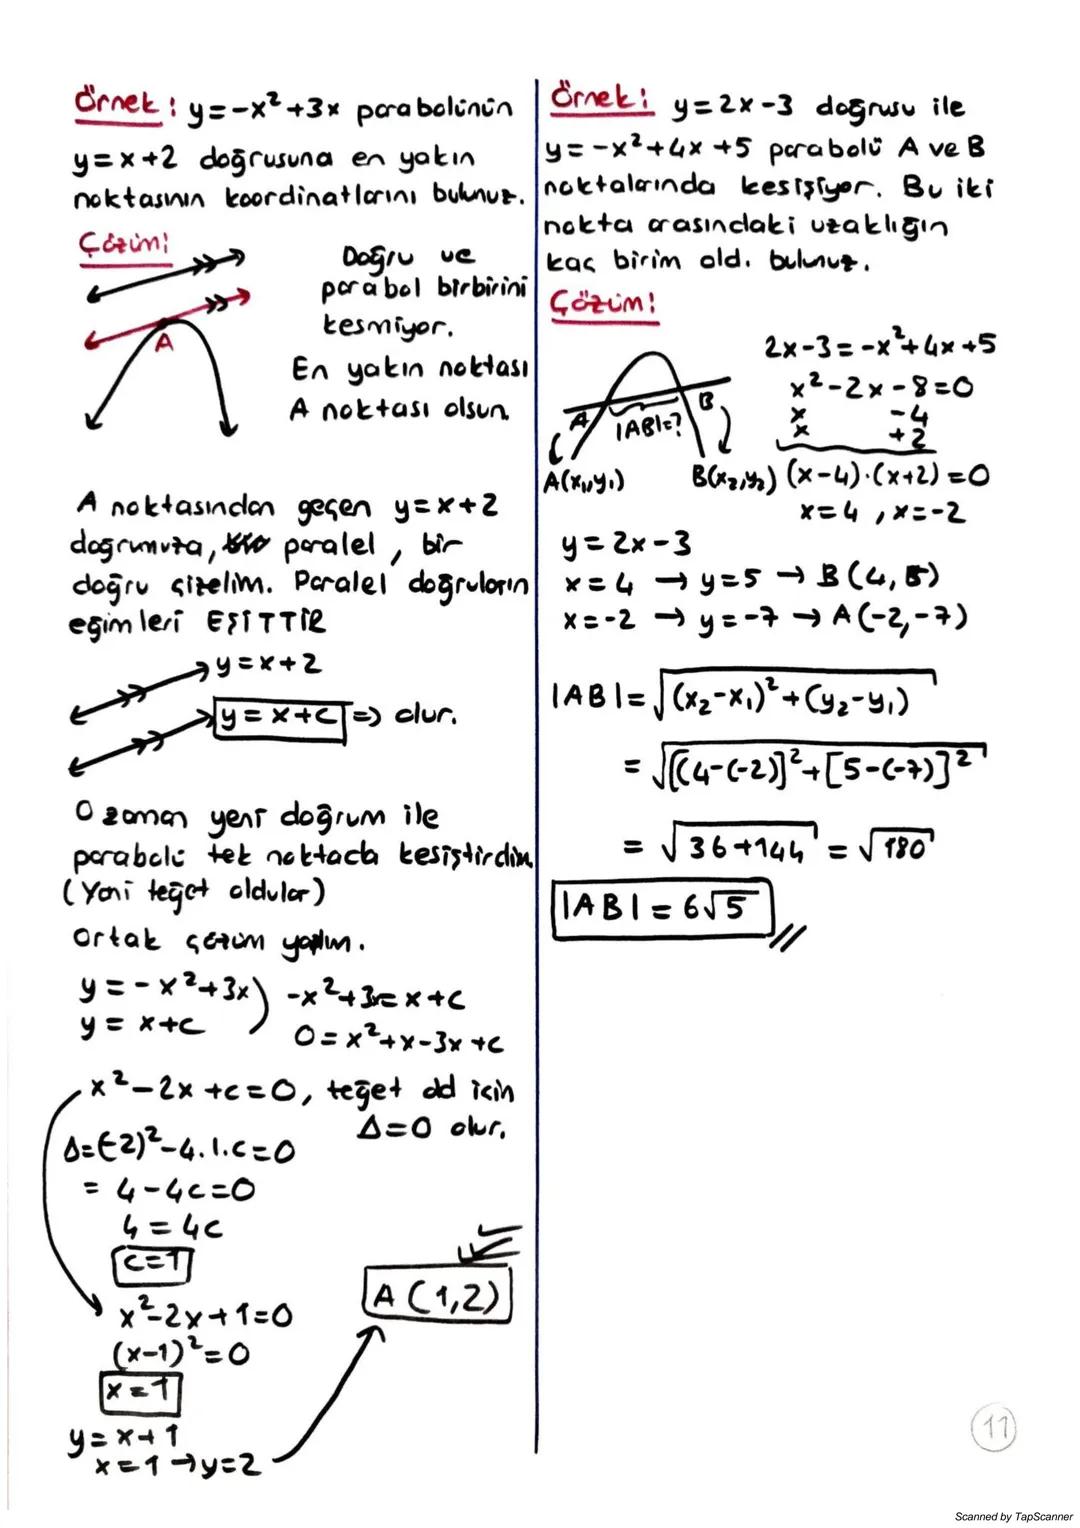 Örnek : y=-x²+3x parabolünün
y=x+2 doğrusuna en yakın
noktasının koordinatlarını bulunuz.
Çözüm:
A
Doğru ve
parabol birbirini
kesmiyor.
En yakın noktası
A noktası olsun.
A noktasından geçen y=x+2
doğrumuza, paralel, bir
doğru çizelim. Paralel doğruların
eğimleri EŞİTTİR
y=x+2
y=x+c => olur.
O zaman yeni doğrum ile
parabolü tek noktada kesiştirdim
(Yani teğet oldular)
Ortak çözüm yapalım.
y=-x²+3x) -x²+3x=x+c
y=x+c
0=x²+x-3x+c
x²-2x+c=0, teğet old için
Δ=0 olur.
Δ=(-2)²-4.1.c=0
= 4-4c=0
4=4c
c=1
x²-2x+1=0
(x-1)²=0
x=1
y=x+1
x=1→y=2
A(1,2)
Örnek: y=2x-3 doğrusu ile
y=-x²+4x+5 parabolü A ve B
noktalarında kesişiyor. Bu iki
nokta arasındaki uzaklığın
kaç birim old. bulunuz.
Çözüm:
A |AB|=? B
A(x₁,y₁) B(x₂,y₂)
2x-3=-x²+4x+5
x²-2x-8=0
x -4
x +2
(x-4).(x+2)=0
x=4, x=-2
y=2x-3
x=4 → y=5 → B(4,5)
x=-2 → y=-7 → A(-2,-7)
|AB|=√(x₂-x₁)²+(y₂-y₁)
=√[(4-(-2)]²+[5-(-7)]²
=√36+144=√180
|AB|=6√5
11
Scanned by TapScanner